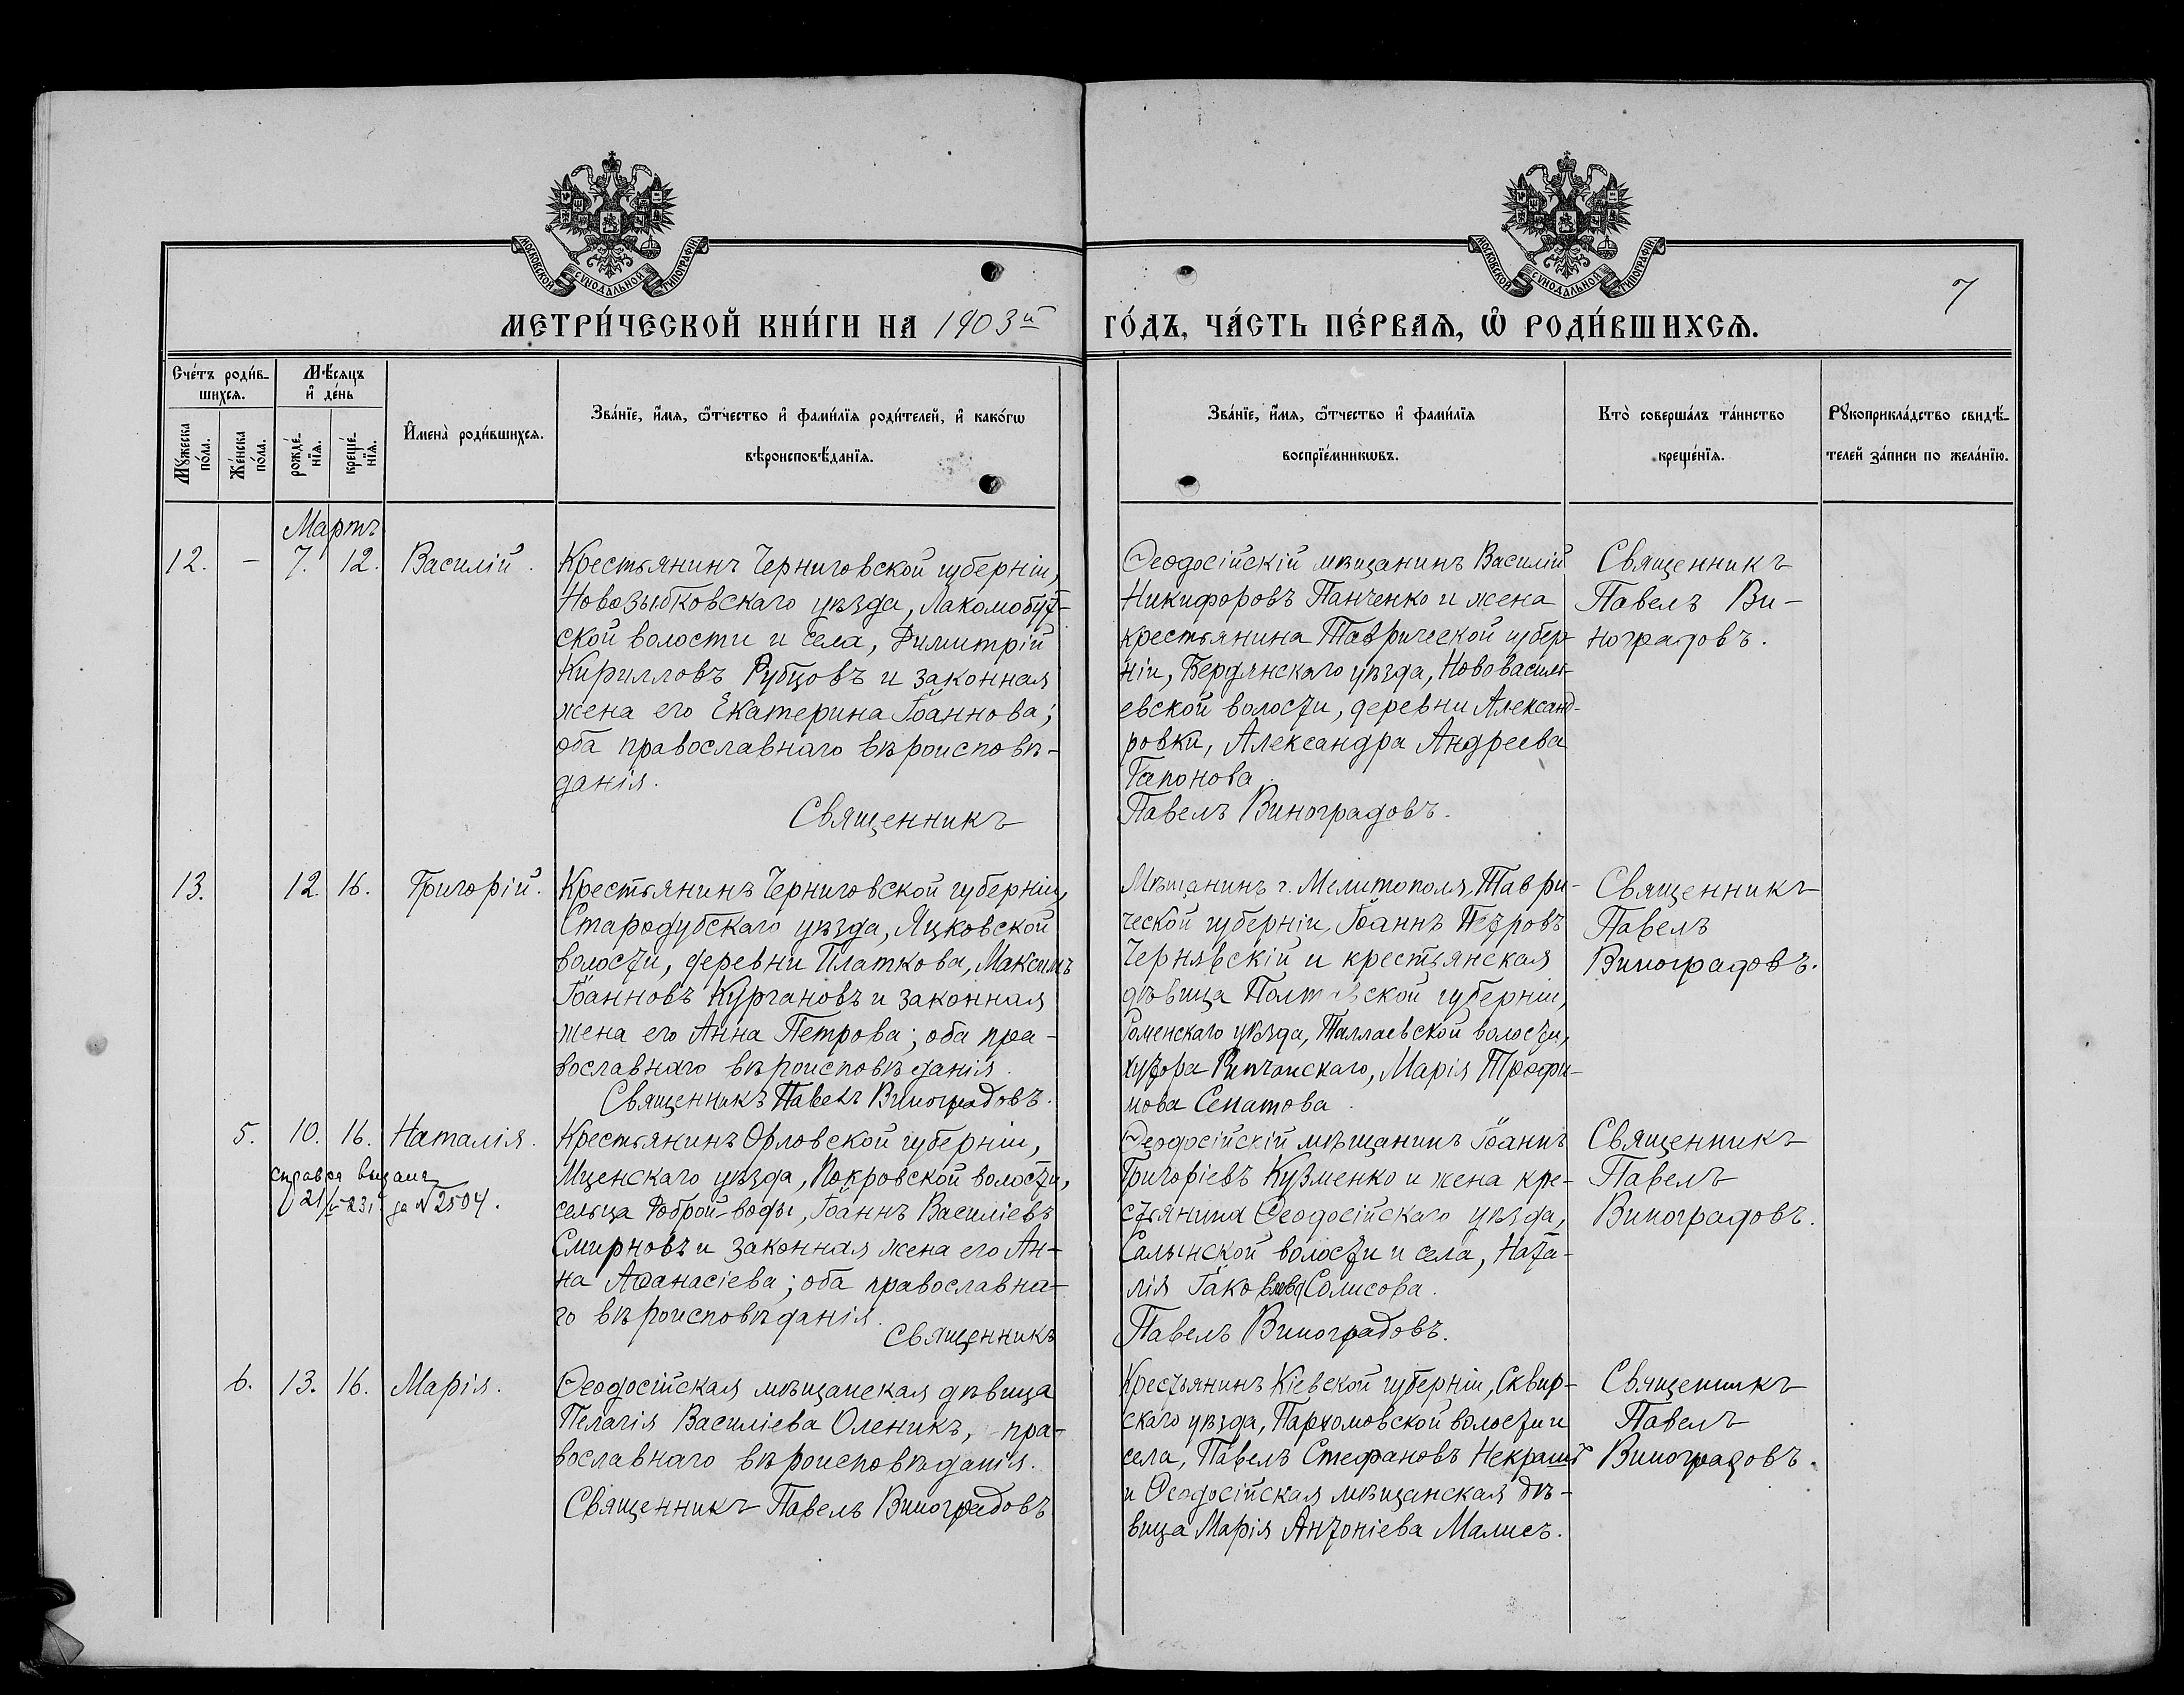 МОСКОВСКОЙ СѴНОДАЛЬНОЙ ТИПОГРАФІИ
МОСКОВСКОЙ СѴНОДАЛЬНОЙ ТИПОГРАФІИ
7
МЕТРИ́ЧЕСКОЙ КНИ́ГИ НА 1903й ГО́ДЪ, ЧА́СТЬ ПЕ́РВАѦ, Ѽ РОДИ́ВШИХСѦ.
Сче́тъ роди́в-
шихся.
Мѣ́сяцъ
и҆ де́нь
Мꙋ́жеска по́ла.
Же́нска по́ла.
рожде́-
нїя.
креще́-
нїя.
И҆мена̀ роди́вшихся.
Зва́нїе, и҆́мя, ѻ҆́тчество и҆ фами́лїя роди́телей, и҆ како́гѡ
вѣроисповѣ́данїя.
Зва́нїе, и҆́мя, ѻ҆́тчество и҆ фами́лїя
воспрїе́мникѡвъ.
Кто̀ соверша́лъ та́инство
креще́нїя.
Рꙋкоприкла́дство свидѣ́-
телей за́писи по жела́нїю.
Мартъ
12. - 7. 12. Василій.
Крестьянинъ Черниговской губерніи,
Новозыбковскаго уѣзда, Лакомобуд-
ской волости и села, Димитрій
Кирилловъ Рубцовъ и законная
жена его Екатерина Іоаннова;
оба православнаго вѣроисповѣ-
данія.
Священникъ
Ѳеодосійскій мѣщанинъ Василій
Никифоровъ Панченко и жена
крестьянина Таврической губер-
ніи, Бердянскаго уѣзда, Нововасиль-
евской волости, деревни Александ-
ровки, Александра Андреева
Гапонова.
Павелъ Виноградовъ.
Священникъ
Павелъ Ви-
ноградовъ.
13. 12. 16. Григорій.
Крестьянинъ Черниговской губерніи,
Стародубскаго уѣзда, Яцковской
волости, деревни Платкова, Максимъ
Іоанновъ Кургановъ и законная
жена его Анна Петрова; оба пра-
вославнаго вѣроисповѣданія.
Священникъ Павелъ Виноградовъ.
Мѣщанинъ г. Мелитополя, Таври-
ческой губерніи, Іоаннъ Петровъ
Чернявскій и крестьянская
дѣвица Полтавской губерніи,
Роменскаго уѣзда, Талалаевской волости,
хутора Марія Трофи-
мова
Священникъ
Павелъ
Виноградовъ.
5. 10. 16. Наталія.
справка выдана
21/ 23 за №2504.
Крестьянинъ Орловской губерніи,
Мценскаго уѣзда, Покровской волости,
сельца Доброй-воды, Іоаннъ Василіевъ
Смирновъ и законная жена его Ан-
на Аѳанасіева; оба православна-
го вѣроисповѣданія.
Священникъ
Ѳеодосійскій мѣщанинъ Іоаннъ
Григоріевъ Кузменко и жена кре-
стьянина Ѳеодосійскаго уѣзда,
Салынской волости и села, Ната-
лія Іаковлева Солисова.
Павелъ Виноградовъ.
Священникъ
Павелъ
Виноградовъ.
6. 13. 16. Марія.
Ѳеодосійская мѣщанская дѣвица
Пелагія Василіева Оленикъ, пра-
вославнаго вѣроисповѣданія.
Священникъ Павелъ Виноградовъ.
Крестьянинъ Кіевской губерніи, Сквир-
скаго уѣзда, Пархомовской волости и
села, Павелъ Стефановъ Некрашъ
и Ѳеодосійская мѣщанская дѣ-
вица Марія Антоніева Малисъ.
Священникъ
Павелъ
Виноградовъ.